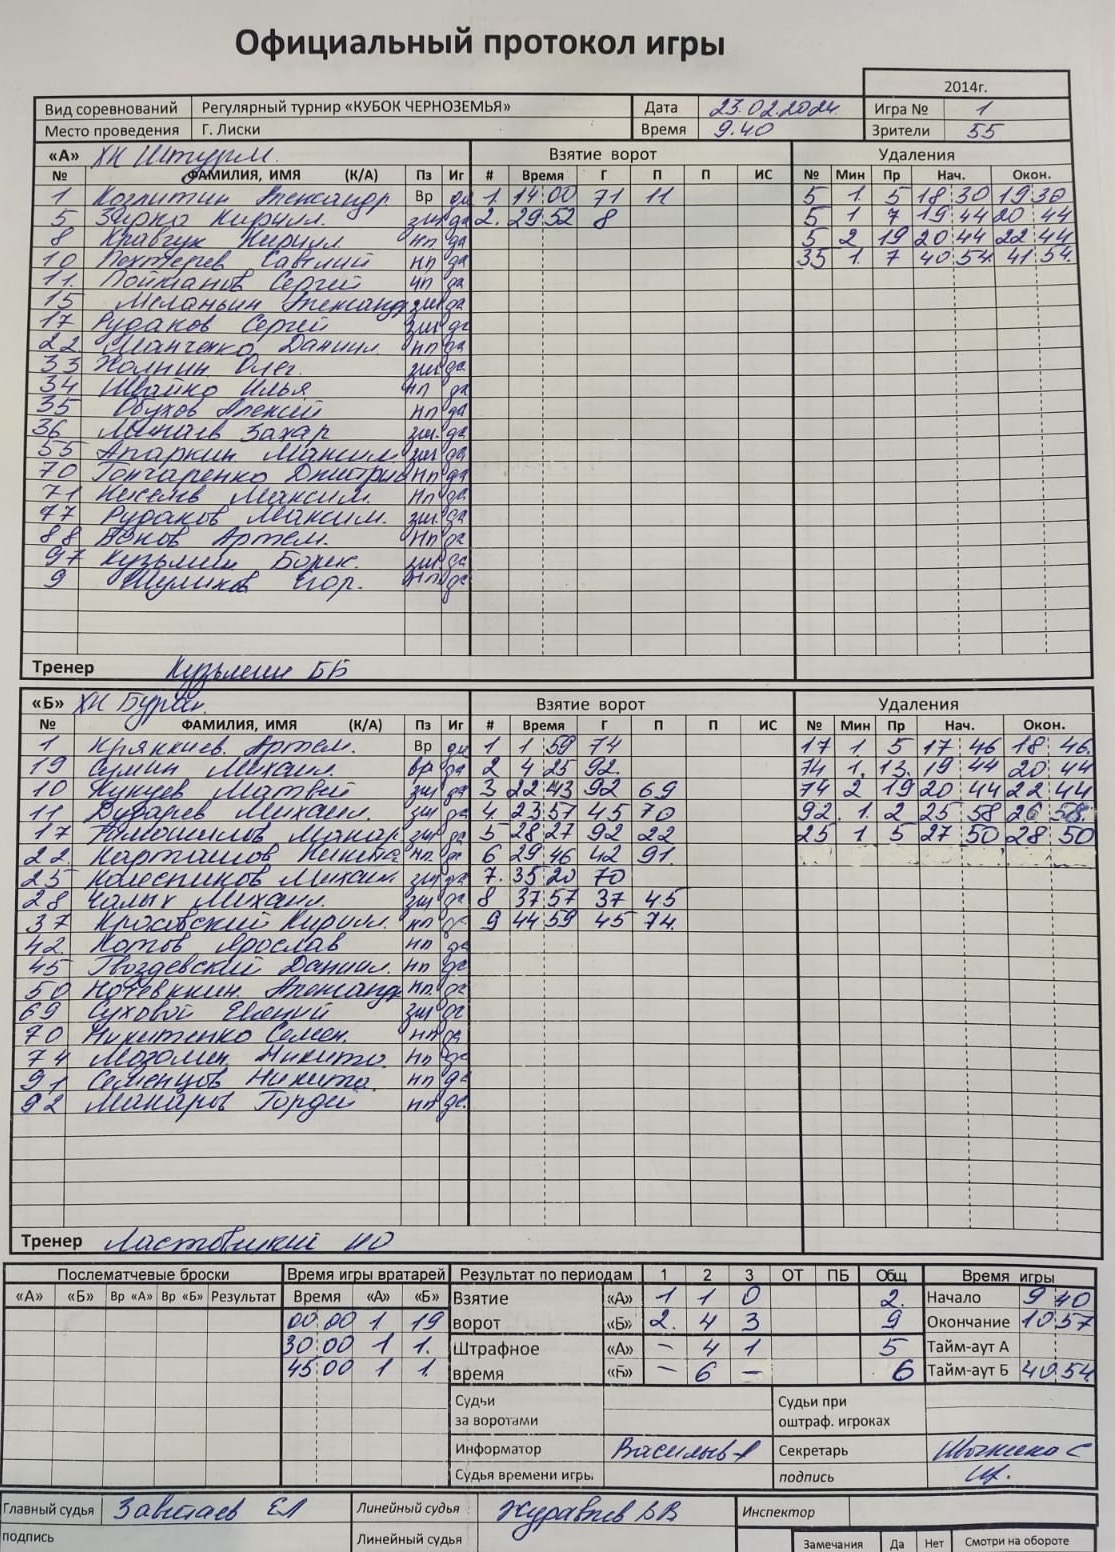 Официальный протокол игры
2014г.
Вид соревнований Регулярный турнир «КУБОК ЧЕРНОЗЕМЬЯ» Дата 23.02.2024 Игра № 1
Место проведения Г. Лиски Время 9.40 Зрители 55
«А» ХК Штурм. Взятие ворот Удаления
№ ФАМИЛИЯ, ИМЯ (К/А) Пз Иг # Время Г П П ИС № Мин Пр Нач. Окон.
1 Александр Вр да 1. 14 00 71 11 5 1. 5 18 30 19 30
5 Кирилл. да 2. 29 52 8 5 1 7 19 44 20 44
8 Кравчук Кирилл нп да 5 2 19 20 44 22 44
10 нп да 35 1. 7 40 54 41 54.
11. Пойманов Сергей нп да
15 Меланьин Александр зщ да
17 Рудаков Сергей зщ да
22 Манченко Даниил. нп да
33 Олег. зщ да
34 Швайко Илья нп да
35 Обухов Алексей нп да
36 Минаев Захар зщ. да
55 Апаркин Максим зщ да
70 Гончаренко Дмитрий нп да
71 Киселев Максим. нп да
77 Рудаков Максим. зщ. да
88 Артем. нп да
97 Кузьмин Борис. зщ да
9 Шуликов Егор. нп да
Тренер Кузьмин ББ
«Б» ХК Буран. Взятие ворот Удаления
№ ФАМИЛИЯ, ИМЯ (К/А) Пз Иг # Время Г П П ИС № Мин Пр Нач. Окон.
1 Артем. Вр да 1 1 59 74 17 1 5 17 46 18 46.
19 Сумин Михаил. вр да 2 4 25 92. 74 1. 13. 19 44 20 44
10 Кунцев Матвей зщ да 3 22 43 92 69 74 2 19 20 44 22 44
11 Дударев Михаил. зщ да 4. 23 57 45 70 92. 1. 2 25 58 26 58.
17 Макар зщ да 5 28 27 92 22 25 1 5 27 50 28 50
22. Карташов Никита нп. да 6 29 46 42 91.
25 Колесников Михаил зщ да 7. 35 20 70
28 Чалых Михаил. зщ да 8 37 57 37 45
37 Кирилл. нп да 9 44 59 45 74.
42. Котов Ярослав нп да
45 Гвоздевский Даниил. нп да
50 Александр нп. да
69 Суховой Евгений зщ да
70 Никитенко Семен. нп да
74 Мозолин Никита. нп да
91 Семенцов Никита. нп да
92 Макаров Гордей нп да.
Тренер Ластовицкий
Послематчевые броски Время игры вратарей Результат по периодам 1 2 3 ОТ ПБ Общ Время игры
«А» «Б» Вр «А» Вр «Б» Результат Время «А» «Б» Взятие «А» 1 1 0 2. Начало 9 40
00 00 1 19 ворот «Б» 2. 4 3 9 Окончание 10 57
30 00 1 1. Штрафное «А» – 4 1 5 Тайм-аут А
45 00 1 1. время «Б» – 6 – 6 Тайм-аут Б 40 54
Судьи за воротами Судьи при оштраф. игроках
Информатор Секретарь
Судья времени игры. подпись
Главный судья ЕЛ Линейный судья Журавлев ВВ Инспектор
подпись Линейный судья Замечания Да Нет Смотри на обороте